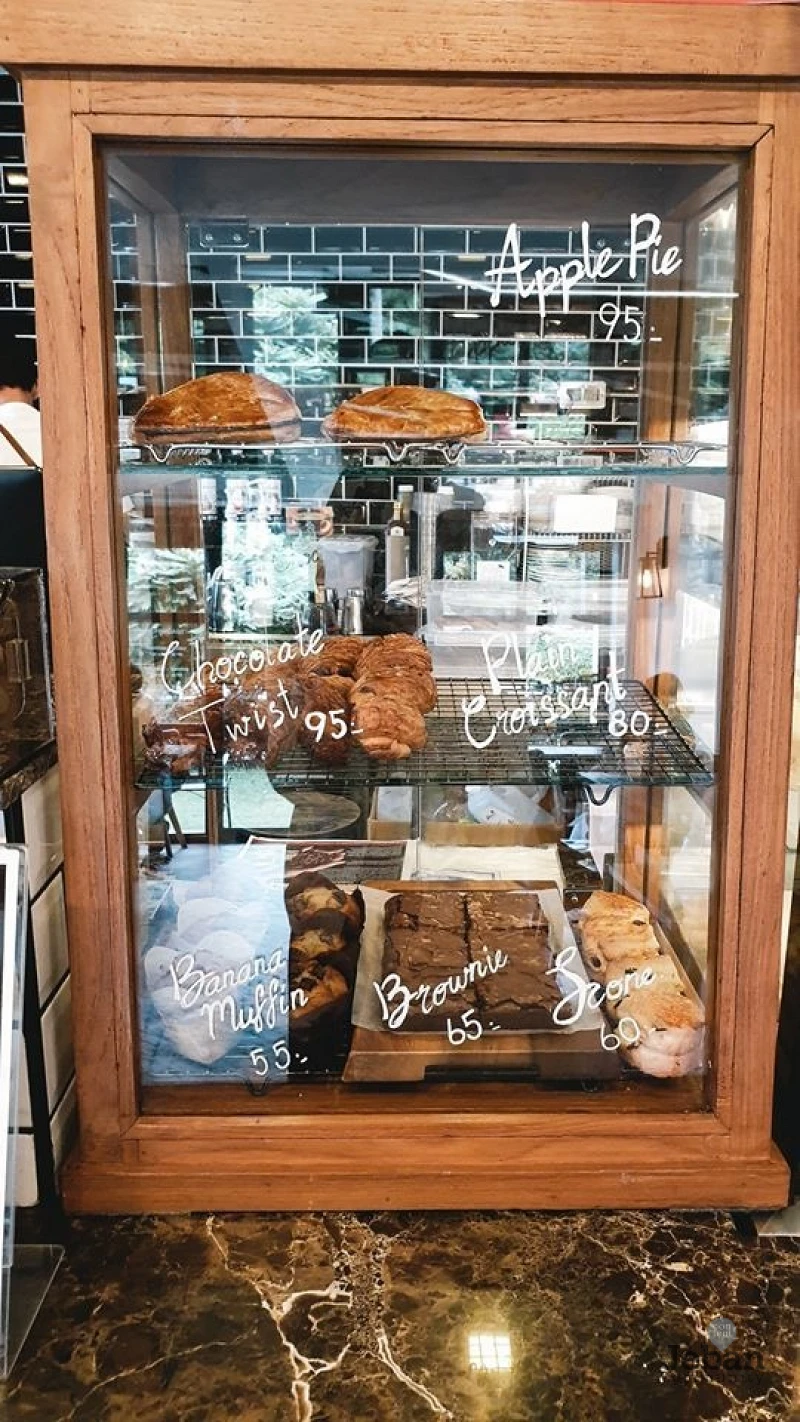 Apple Pie
95.-
Chocolate
Twist 95.-
Plain
Croissant
80.-
Banana
Muffin
55.-
Brownie
65.-
Scone
60.-
Jeban